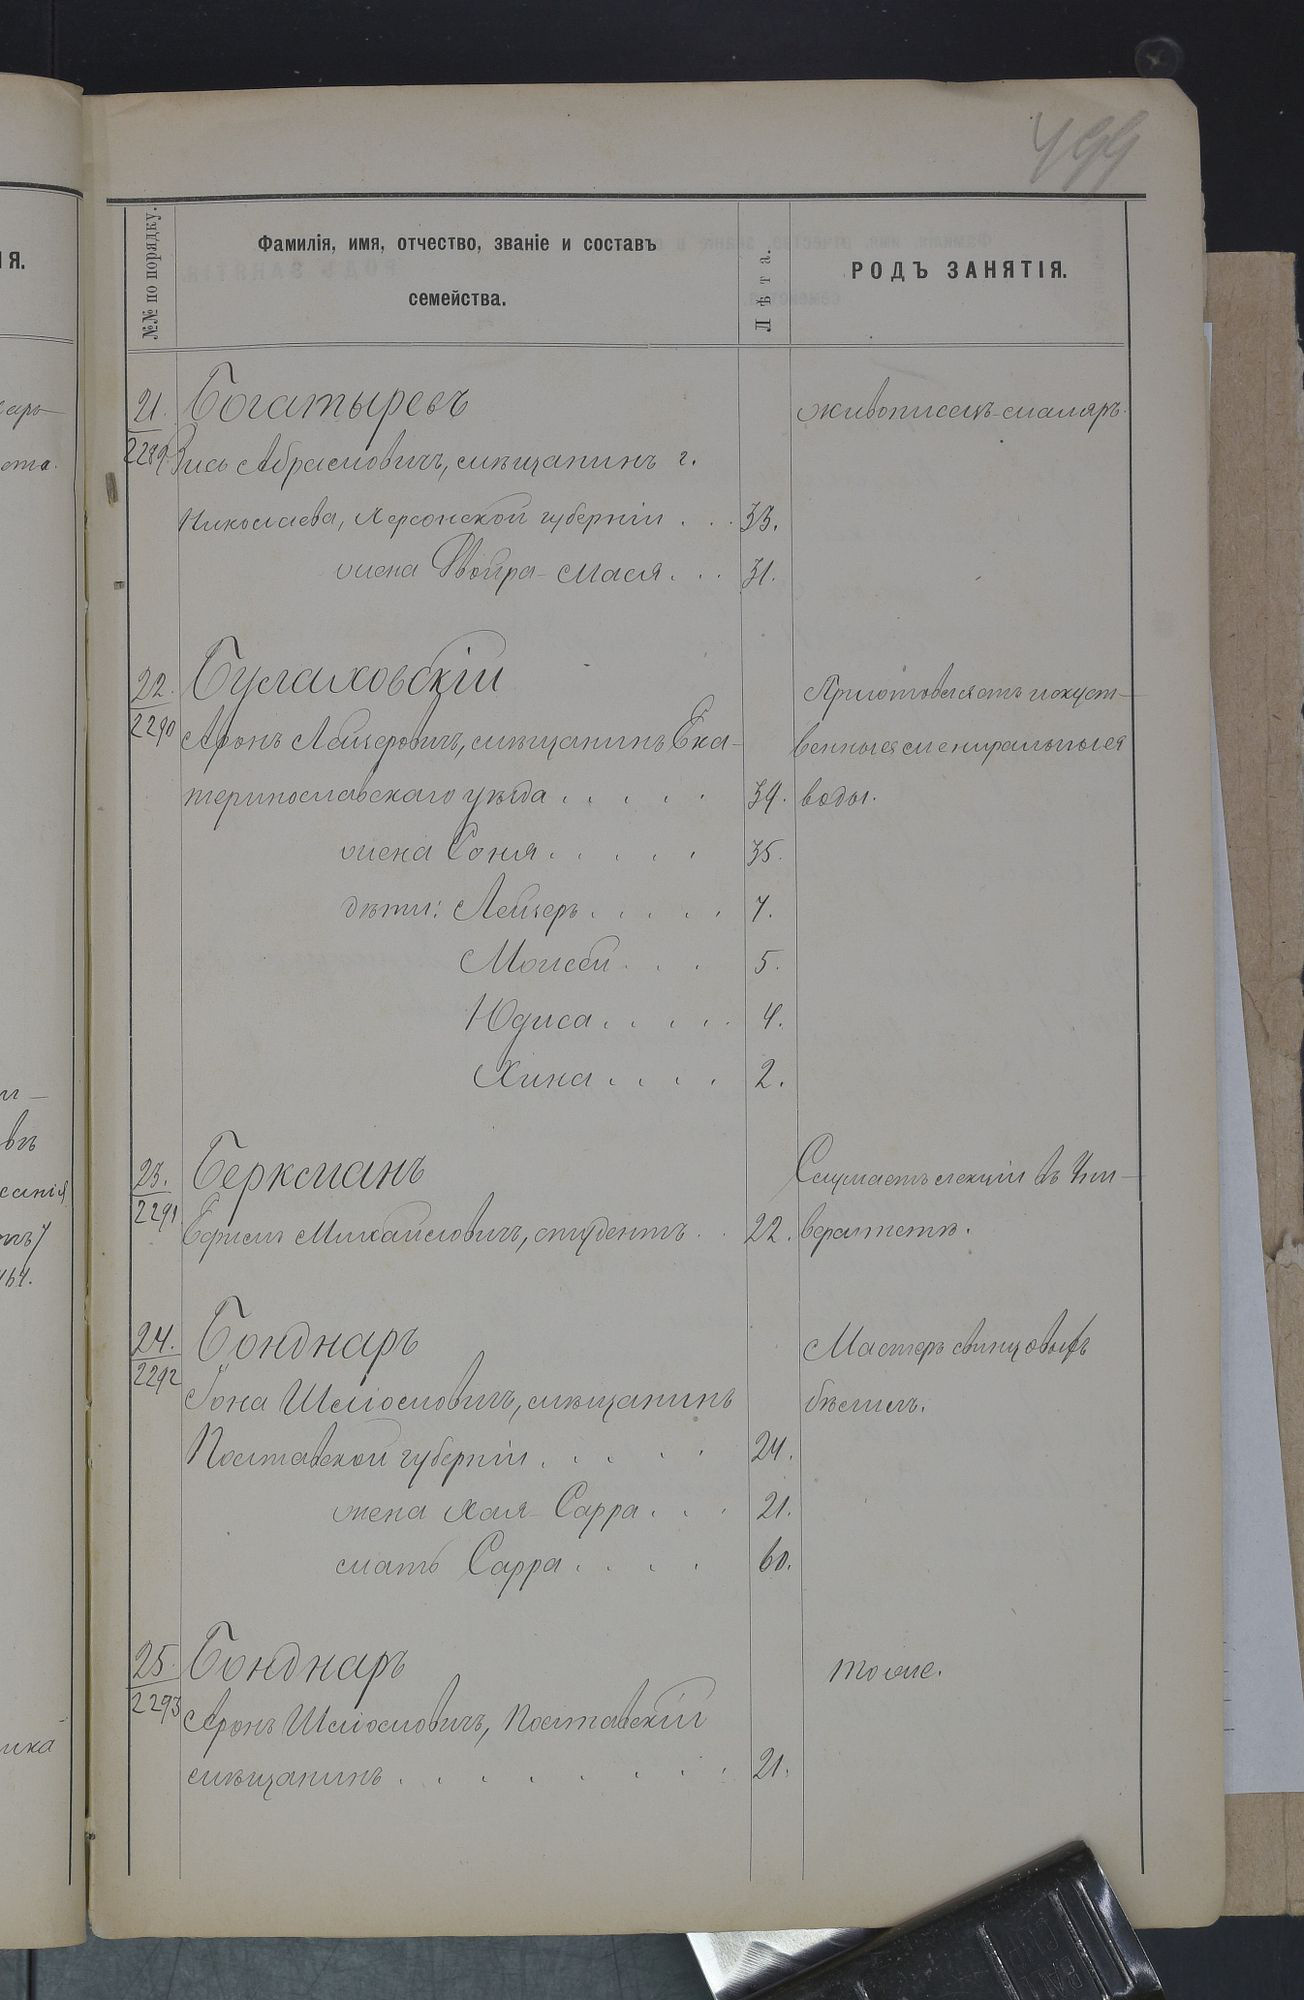 499
№№ по порядку.
Фамилія, имя, отчество, званіе и составъ
семейства.
Лѣта.
РОДЪ ЗАНЯТІЯ.
21. Богатыревъ живописецъ-маляръ.
2289 Зись Абрамовичъ, мѣщанинъ г.
Николаева, Херсонской губерніи . . . 33.
жена Двойра-Мася . . . 31.
22. Булаховскій Приготовляетъ искуст-
2290 Аронъ Лейзеровичъ, мѣщанинъ Ека- венныя минеральныя
теринославскаго уѣзда . . . . . 39. воды.
жена Соня . . . . . 35.
дѣти: Лейзеръ . . . . . 7.
Моисей . . . 5.
Юдиса . . . . . 4.
Хина . . . . 2.
23. Беркманъ Слушаетъ лекціи въ Уни-
2291 Ефимъ Михайловичъ, студентъ . . 22. верситетѣ.
24. Бонднаръ Мастеръ свинцовыхъ
2292 Іона Шліомовичъ, мѣщанинъ бѣлилъ.
Полтавской губерніи . . . . . 24.
жена Хая-Сарра . . . 21.
мать Сарра . . . . 60.
25. Бонднаръ тоже.
2293 Аронъ Шліомовичъ, Полтавскій
мѣщанинъ . . . . . . . . . 21.